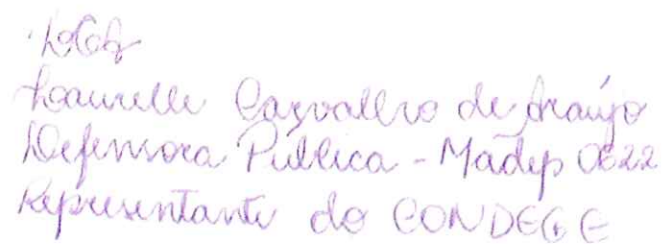 Laurelle Carvalho de Araújo
Defensora Pública - Madep 0622
Representante do CONDEGE